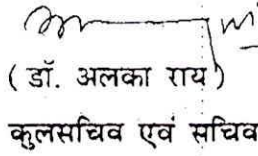 ( डॉ. अलका राय )
कुलसचिव एवं सचिव